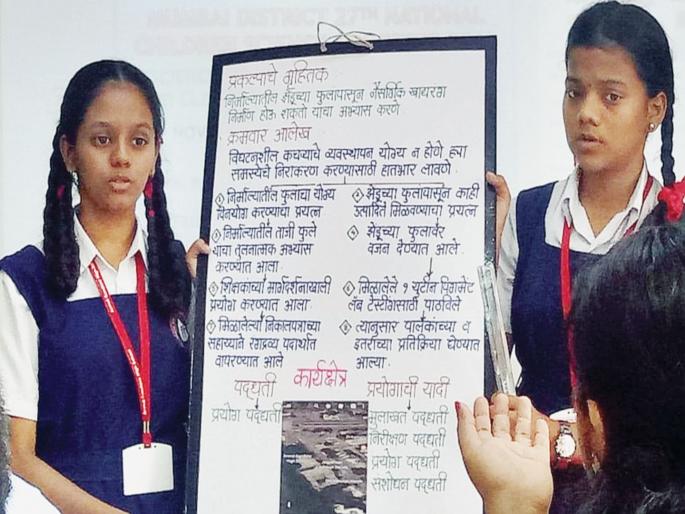 MUMBAI DISTRICT 27TH NATIONAL
प्रकल्पाचे गृहितक
निर्माल्यातील झेंडूच्या फुलापासून नैसर्गिक खायरंग
निर्माण होऊ शकतो याचा अभ्यास करणे
क्रमवार आलेख
विघटनशील कचऱ्याचे व्यवस्थापन योग्य न होणे ह्या
समस्येचे निराकरण करण्यासाठी हातभार लावणे.
१ निर्माल्यातील फुलाचा योग्य
विनयोग करण्याचा प्रयत्न
२ झेंडूच्या फुलापासून काही
उत्पादिते मिळवण्याचा प्रयत्न
निर्माल्यातील ताजी फुले
याचा तुलनात्मक अभ्यास
करण्यात आला.
झेंडूच्या फुलावर
वजन देण्यात आले.
शिक्षकाच्या मार्गदर्शनाखाली
प्रयोग करण्यात आला.
मिळालेले १ यूटीन पिगमेंट
लॅब टेस्टींगसाठी पाठविले
७ मिळालेल्या निकालपत्राच्या
सहाय्याने रंगद्रव्य पदार्थात
वापरण्यात आले
८ त्यानुसार पालकांच्या व
इतरांच्या प्रतिक्रिया घेण्यात
आल्या.
कार्यक्षेत्र
पद्धती
प्रयोग पद्धती
प्रयोगाची यादी
मुलाखत पद्धती
निरीक्षण पद्धती
प्रयोग पद्धती
संशोधन पद्धती